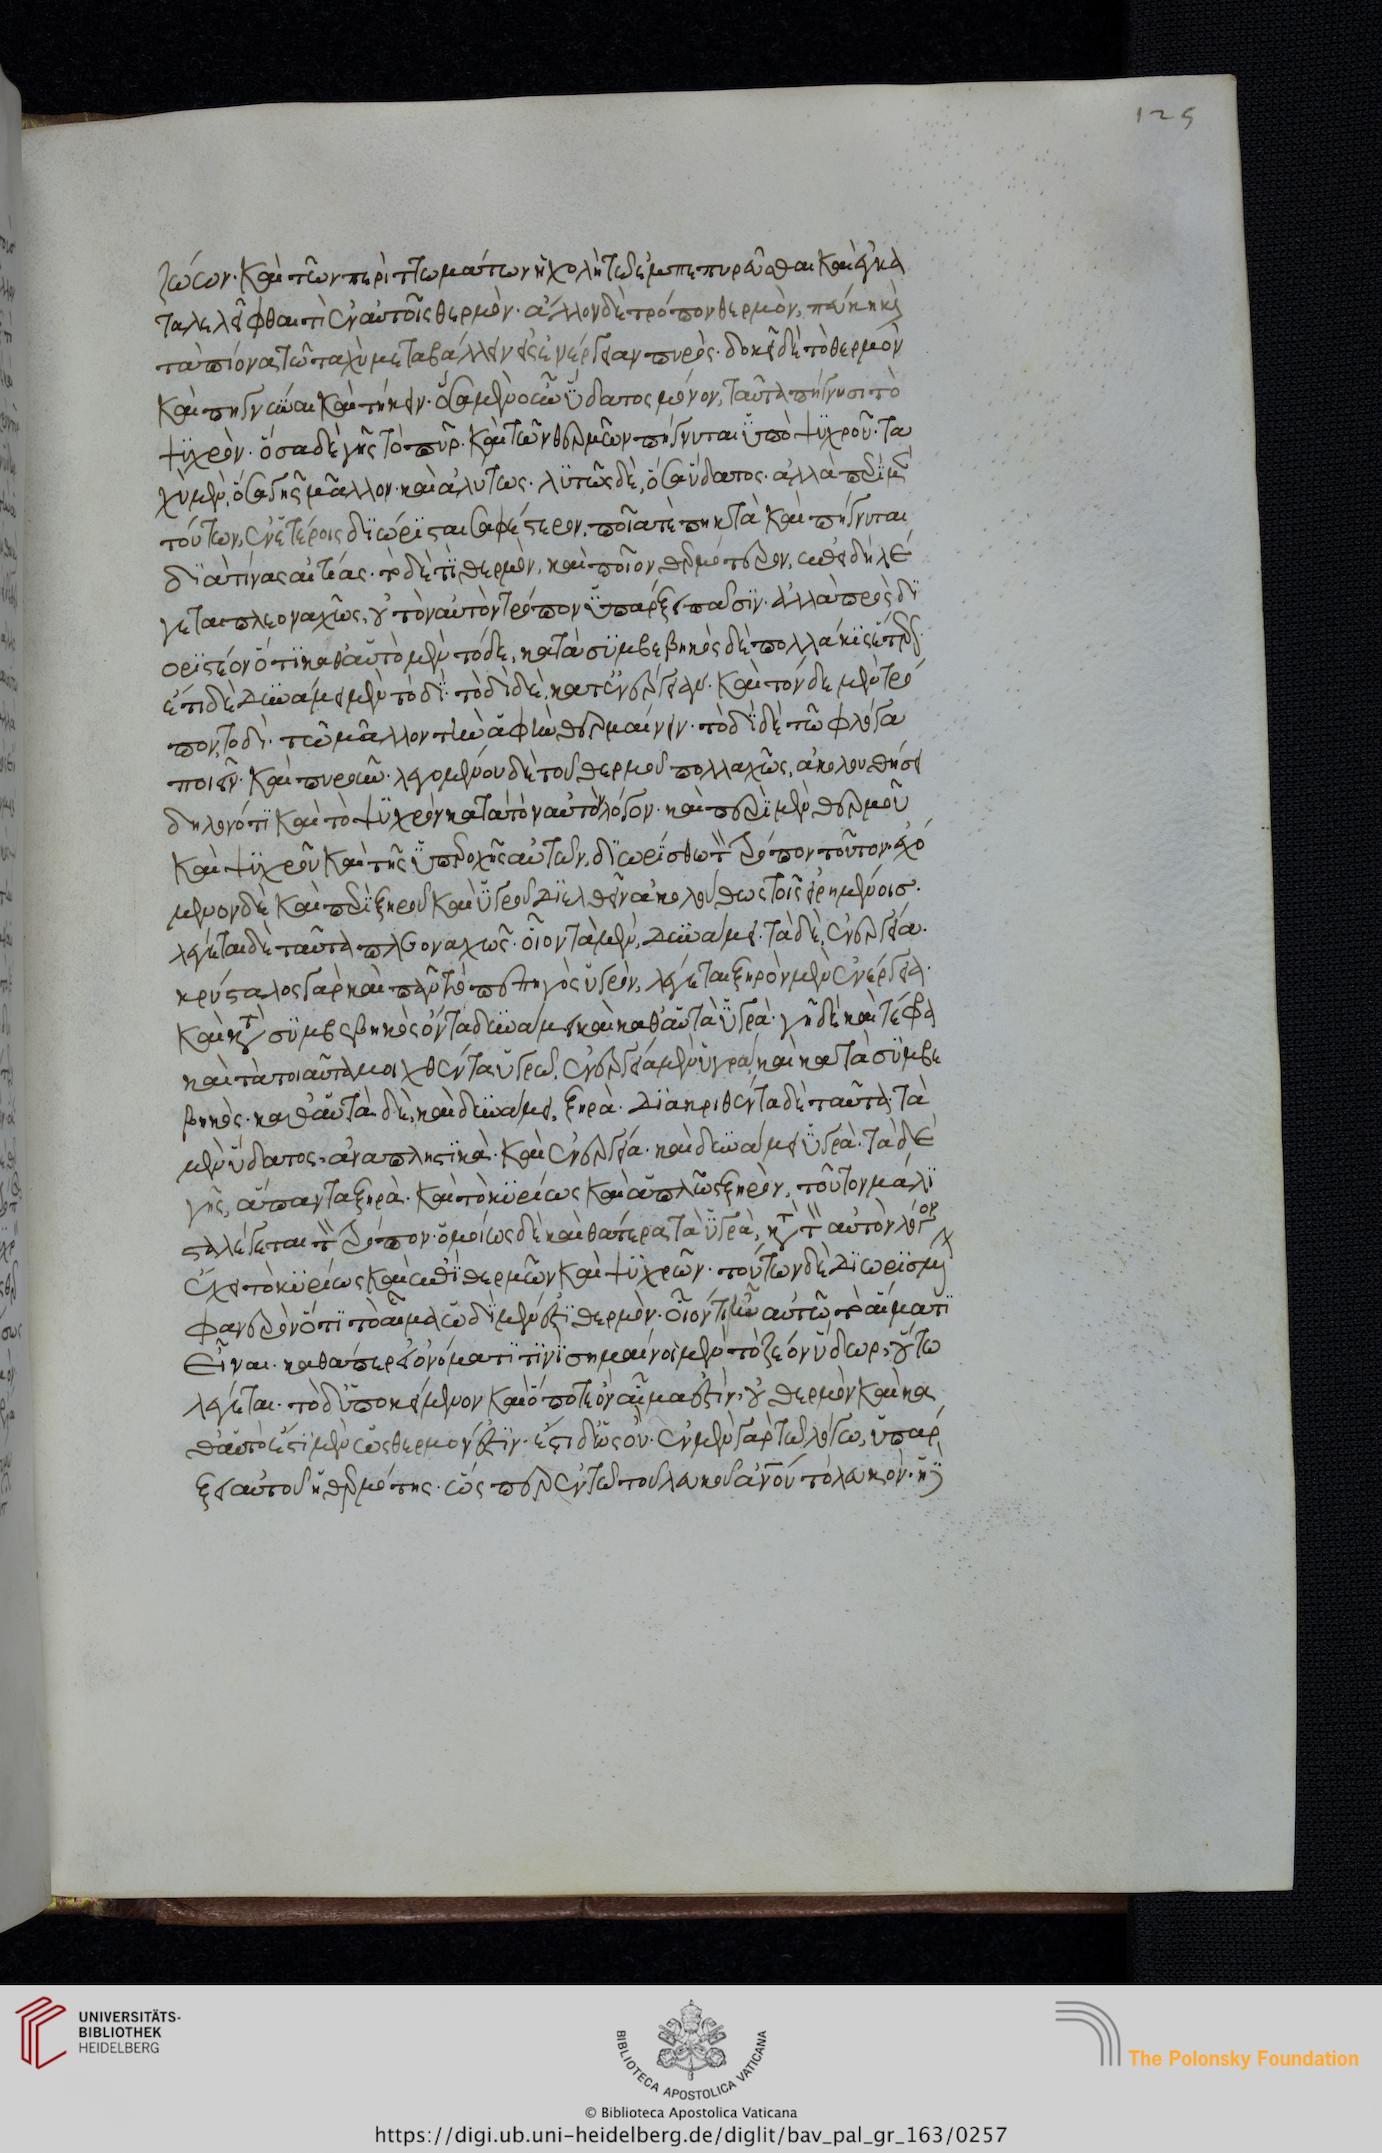 ζώων· καὶ τῶν περιττωμάτων ἡ χολὴ τῶ δὲ ἐμπεπυρεῦσθαι καὶ ἐγκα
ταλελεῖφθαι τὶ ἐν αὐτοῖς θερμόν· ἄλλον δὲ τρόπον θερμὸν, πεύκη καὶ
τὰ πίονα τῶ ταχὺ μεταβάλλειν εἰς ἐνέργειαν πυρός· δοκεῖ δὲ τὸ θερμὸν
καὶ πηγνύναι καὶ τήκειν· ὅσα μὲν οὖν ὕδατος μόνον, ταῦτα πήγνυσι τὸ
ψυχρόν· ὅσα δὲ γῆς τὸ πῦρ· καὶ τῶν θερμῶν πήγνυται ὑπὸ ψυχροῦ· τα
χὺ μὲν, ὅσα γῆς μᾶλλον· καὶ ἀλύτως· λυτῶς δὲ, ὅσα ὕδατος· ἀλλὰ περὶ μὲν
τούτων, ἐν ἑτέροις διώρισται σαφέστερον, ποῖά τε πηκτὰ καὶ πήγνυται
διὰ τίνας αἰτίας· τὸ δὲ τί θερμὸν, καὶ ποῖον θερμότερον, ἐπειδὴ λέ
γεται πλεοναχῶς, οὐ τὸν αὐτὸν τρόπον ὑπάρξει πᾶσιν· ἀλλὰ προσδι
οριστέον ὅτι καθ' αὑτὸ μὲν τόδε, κατὰ συμβεβηκὸς δὲ πολλάκις ἕτερον·
ἔτι δὲ δυνάμει μὲν τοδί· τοδὶ δὲ, κατ' ἐνέργειαν· καὶ τόνδε μὲν τρό
πον, τοδί· τῶ μᾶλλον τὴν ἁφὴν θερμαίνειν· τοδὶ δὲ τῶ φλόγα
ποιεῖν· καὶ πυροῦν· λεγομένου δὲ τοῦ θερμοῦ πολλαχῶς, ἀκολουθήσει
δηλονότι καὶ τὸ ψυχρὸν κατὰ τὸν αὐτὸν λόγον· καὶ περὶ μὲν θερμοῦ
καὶ ψυχροῦ καὶ τῆς ὑπεροχῆς αὐτῶν, διωρίσθω τὸν τρόπον τοῦτον· ἐχό
μενον δὲ καὶ περὶ ξηροῦ καὶ ὑγροῦ διελθεῖν ἀκολούθως τοῖς εἰρημένοις·
λέγεται δὲ ταῦτα πλεοναχῶς· οἷον τὰ μὲν, δυνάμει· τὰ δὲ, ἐνεργεία·
κρύσταλος γὰρ καὶ πᾶν τὸ πεπηγὸς ὑγρὸν, λέγεται ξηρὸν μὲν ἐνεργεία·
καὶ κατὰ συμβεβηκὸς ὄντα δυνάμει καὶ καθ' αὑτὰ ὑγρά· γῆ δὲ καὶ τέφρα
καὶ τὰ τοιαῦτα μιχθέντα ὑγρῶ, ἐνεργεία μὲν ὑγρὰ καὶ κατὰ συμβε
βηκός· καθ' αὑτὰ δὲ, καὶ δυνάμει, ξηρά· διακριθέντα δὲ ταῦτα, τὰ
μὲν ὕδατος, ἀναπληστικά· καὶ ἐνεργεία· καὶ δυνάμει ὑγρά· τὰ δὲ
γῆς, ἅπαντα ξηρά· καὶ τὸ κυρίως καὶ ἁπλῶς ξηρὸν, τοῦτον μάλι
στα λέγεται τὸν τρόπον· ὁμοίως δὲ καὶ θάτερα τὰ ὑγρὰ, κατὰ τὸν αὐτὸν λόγον
ἔχει τὸ κυρίως καὶ ἐπὶ θερμῶν καὶ ψυχρῶν· τούτων δὲ διωρισμένων
φανερὸν ὅτι τὸ αἷμα ὡδὶ μέν ἐστι θερμόν· οἷον τι ἦν αὐτῶ τὸ αἵματι
εἶναι· καθάπερ εἰ ὀνόματί τινι σημαίνοιμεν τὸ ζέον ὕδωρ, οὕτω
λέγεται· τὸ δ' ὑποκείμενον καὶ ὅ ποτε ὂν αἷμα ἐστὶν, οὐ θερμὸν καὶ κα
θ' αὑτὸ ἔστι μὲν ὡς θερμόν ἐστιν· ἔστι δ' ὡς οὔ· ἐν μὲν γὰρ τῶ λόγω, ὑπάρ
ξει αὐτοῦ ἡ θερμότης· ὥσπερ ἐν τῶ τοῦ λευκοῦ ἀνου τὸ λευκόν· ἧ